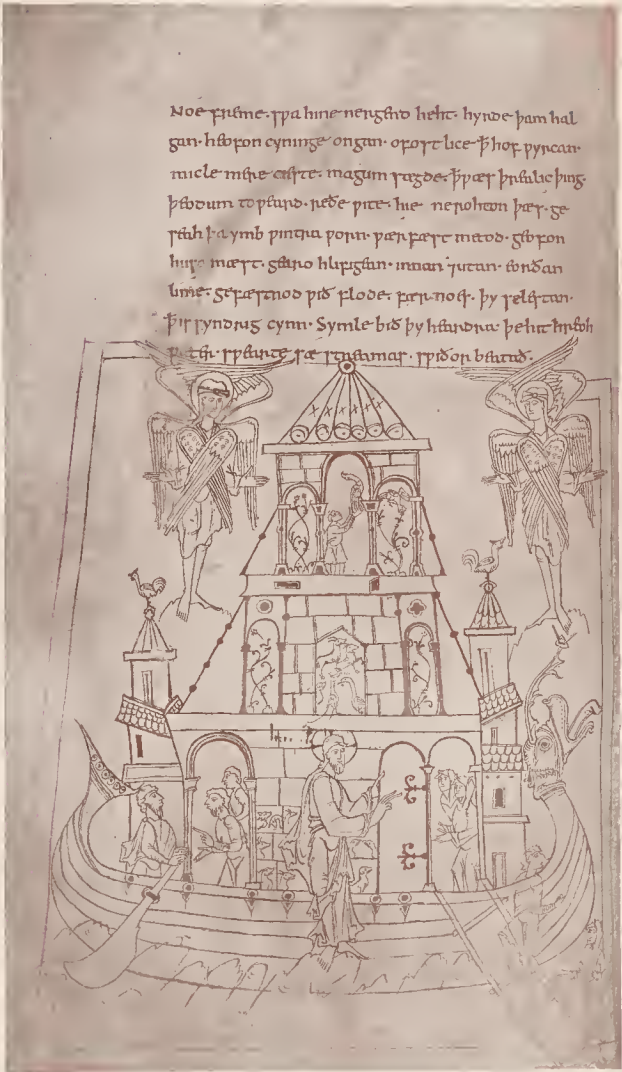 Noe freme · sƿa hine nergend heht · hyrde þam hal
gan · heofon cyninge ongan · ofost lice ꝥ hof ƿyrcan ·
micle mere cieste · magum sægde · ꝥ ƿæs þrealic þing ·
þeodum toƿeard · reðe ƿite · hie ne rohton þæs · ge
seah þa ymb ƿintra ƿorn · ƿærfæst metod · geofon
husa mæst · gearo hlifigean · innan ⁊ utan · eorðan
lime · gefæstnod ƿið flode · fær · noes · þy selestan ·
ꝥ is syndrig cynn · Symle bið þy heardra · þe hit hreoh
ƿæter · sƿearte sæ streamas · sƿiðor beatað ·